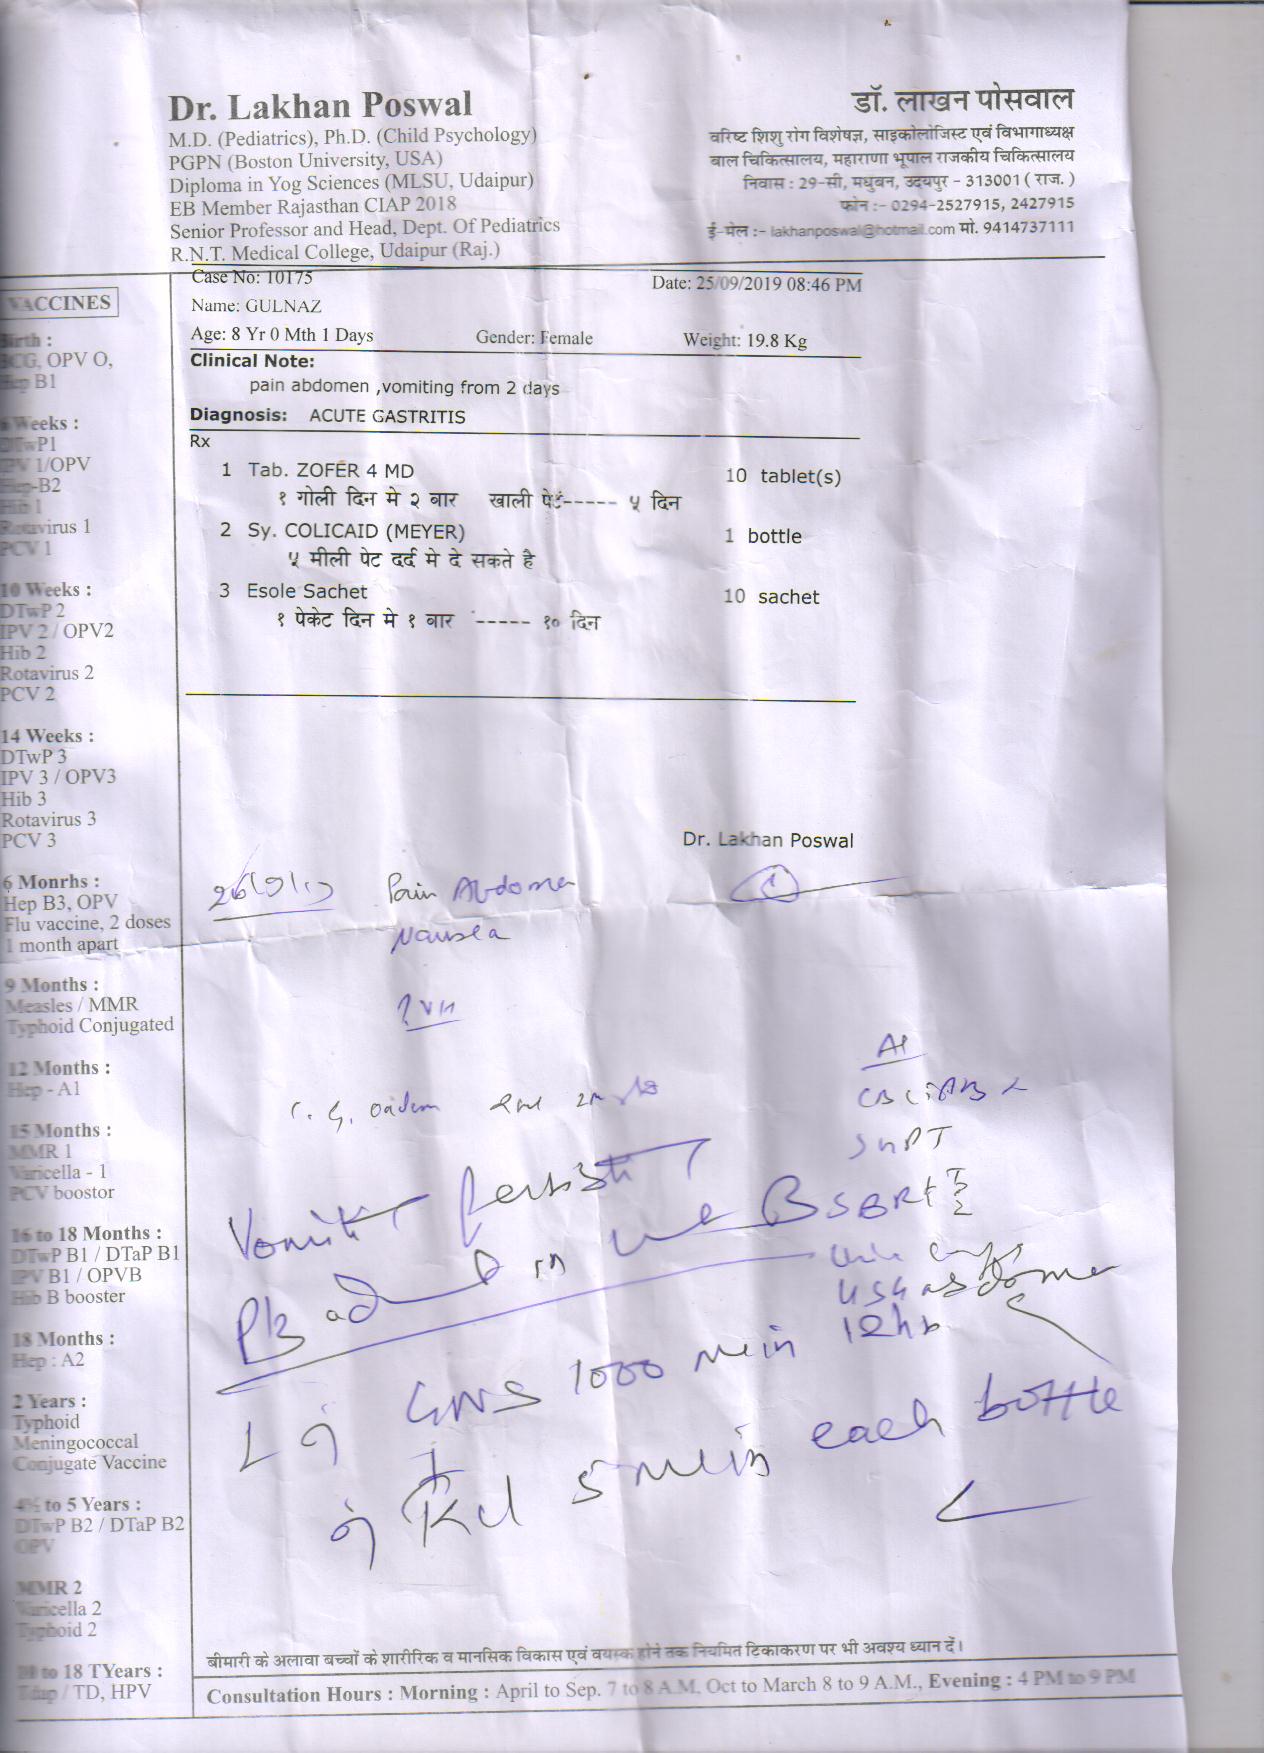 Dr. Lakhan Poswal
M.D. (Pediatrics), Ph.D. (Child Psychology)
PGPN (Boston University, USA)
Diploma in Yog Sciences (MLSU, Udaipur)
EB Member Rajasthan CIAP 2018
Senior Professor and Head, Dept. Of Pediatrics
R.N.T. Medical College, Udaipur (Raj.)
डॉ. लाखन पोसवाल
वरिष्ट शिशु रोग विशेषज्ञ, साइकोलोजिस्ट एवं विभागाध्यक्ष
बाल चिकित्सालय, महाराणा भूपाल राजकीय चिकित्सालय
निवास : 29-सी, मधुबन, उदयपुर - 313001 ( राज. )
फोन :- 0294-2527915, 2427915
ई-मेल :- lakhanposwal@hotmail.com मो. 9414737111
Case No: 10175
Date: 25/09/2019 08:46 PM
Name: GULNAZ
Age: 8 Yr 0 Mth 1 Days Gender: Female Weight: 19.8 Kg
Clinical Note:
pain abdomen ,vomiting from 2 days
Diagnosis: ACUTE GASTRITIS
Rx
1 Tab. ZOFER 4 MD 10 tablet(s)
१ गोली दिन मे २ बार खाली पेट----- ५ दिन
2 Sy. COLICAID (MEYER) 1 bottle
५ मीली पेट दर्द मे दे सकते है
3 Esole Sachet 10 sachet
१ पेकेट दिन मे १ बार ----- १० दिन
Dr. Lakhan Poswal
Pain Abdomen
Nausea
Vomiting persist
ad in
USG abdomen
GNS 1000 ml in 12 hr
Kcl 5 ml in each bottle
VACCINES
Birth :
BCG, OPV O,
Hep B1
6 Weeks :
DTwP1
IPV 1/OPV
Hep-B2
Hib 1
Rotavirus 1
PCV 1
10 Weeks :
DTwP 2
IPV 2 / OPV2
Hib 2
Rotavirus 2
PCV 2
14 Weeks :
DTwP 3
IPV 3 / OPV3
Hib 3
Rotavirus 3
PCV 3
6 Monrhs :
Hep B3, OPV
Flu vaccine, 2 doses
1 month apart
9 Months :
Measles / MMR
Typhoid Conjugated
12 Months :
Hep - A1
15 Months :
MMR 1
Varicella - 1
PCV boostor
16 to 18 Months :
DTwP B1 / DTaP B1
IPV B1 / OPVB
Hib B booster
18 Months :
Hep : A2
2 Years :
Typhoid
Meningococcal
Conjugate Vaccine
4½ to 5 Years :
DTwP B2 / DTaP B2
OPV
MMR 2
Varicella 2
Typhoid 2
to 18 TYears :
Tdap / TD, HPV
बीमारी के अलावा बच्चों के शारीरिक व मानसिक विकास एवं वयस्क होने तक नियमित टिकाकरण पर भी अवश्य ध्यान दें।
Consultation Hours : Morning : April to Sep. 7 to 8 A.M, Oct to March 8 to 9 A.M., Evening : 4 PM to 9 PM